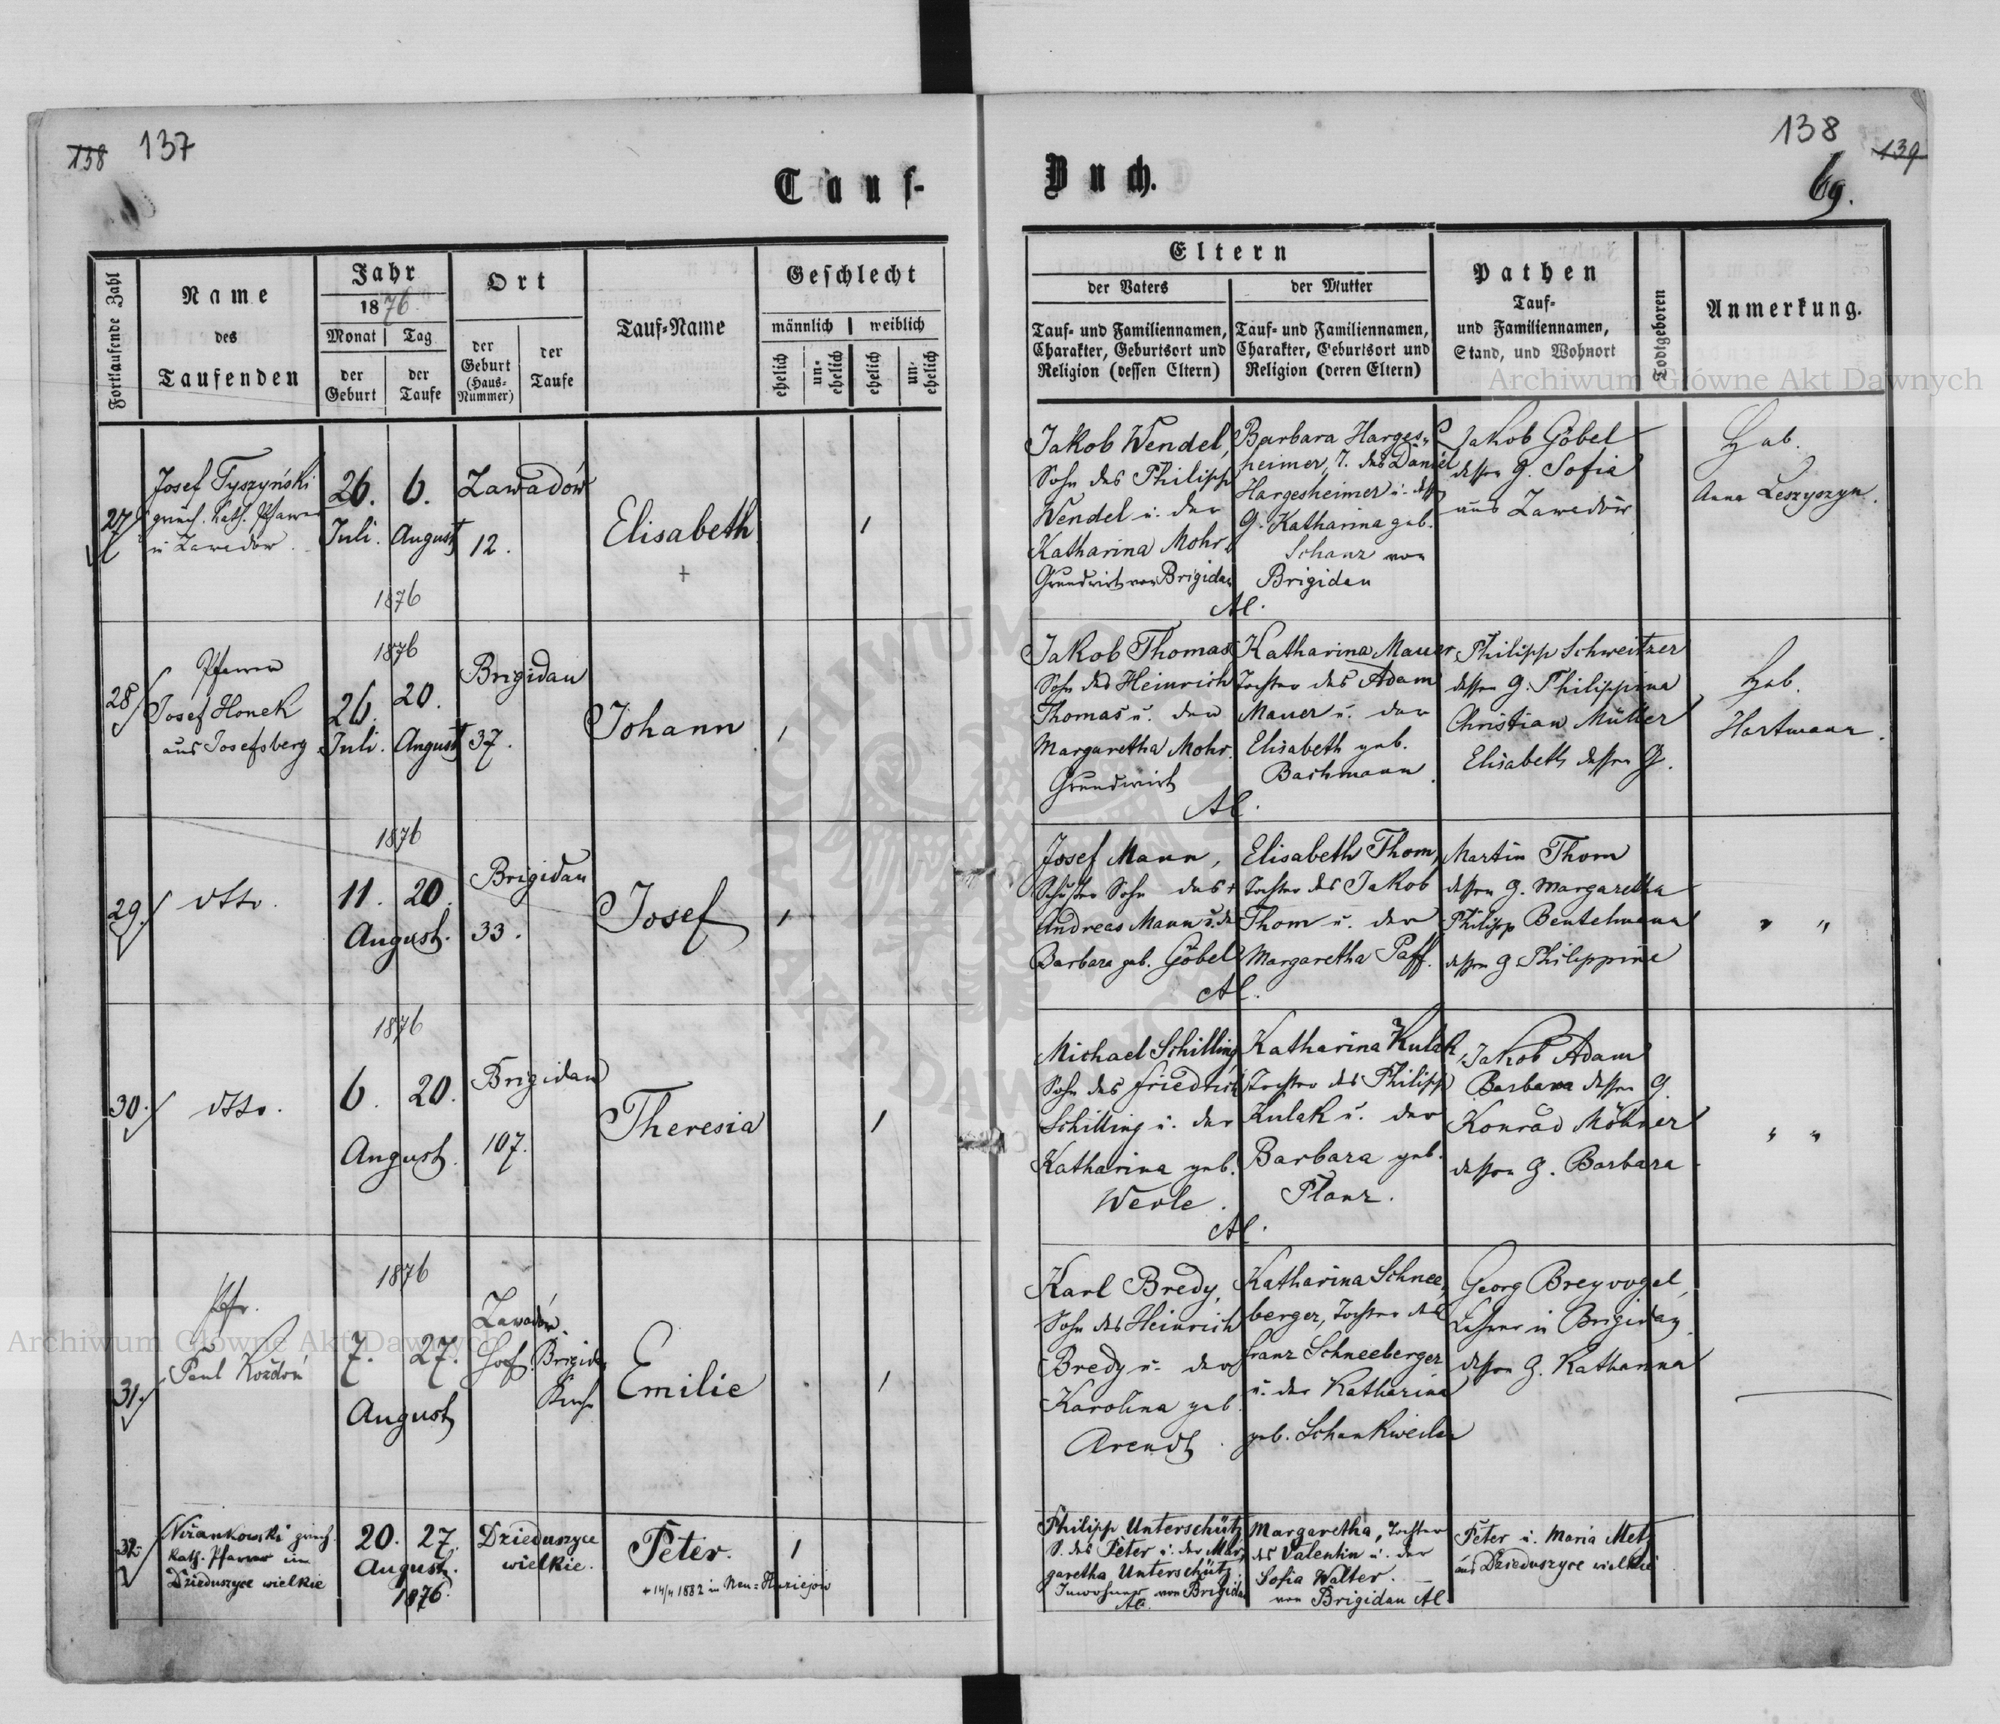 158 137
138 139
69.
Tauf-
Buch.
Fortlaufende Zahl
Name
des
Taufenden
Jahr
1876
Monat Tag
der Geburt
der Taufe
Ort
der Geburt (Haus-Nummer)
der Taufe
Tauf-Name
Geschlecht
männlich weiblich
ehelich
un-ehelich
ehelich
un-ehelich
Eltern
der Vaters
der Mutter
Tauf- und Familiennamen,
Charakter, Geburtsort und
Religion (dessen Eltern)
Tauf- und Familiennamen,
Charakter, Geburtsort und
Religion (deren Eltern)
Pathen
Tauf-
und Familiennamen,
Stand, und Wohnort
Todtgeboren
Anmerkung.
Archiwum Główne Akt Dawnych
27
Josef Tyszyński
griech. kath. Pfarrer
in Zawadów
26. 6.
Juli. August
1876
Zawadów
12.
Elisabeth
+
1
Jakob Wendel,
Sohn des Philipp
Wendel u. der
Katharina Mohr
Grundwirt von Brigidau
Al.
Barbara Harges-
heimer, T. des Daniel
Hargesheimer u. dess
G. Katharina geb.
Schanz von
Brigidau
Jakob Göbel
dessen G. Sofia
aus Zawadów
Heb.
Anna Leszyszyn.
28
Pfarrer
Josef Honek
aus Josefsberg
1876
26. 20.
Juli. August
Brigidau
37.
Johann
1
Jakob Thomas
Sohn des Heinrich
Thomas u. der
Margaretha Mohr.
Grundwirt
Al.
Katharina Mauer,
Tochter des Adam
Mauer u. der
Elisabeth geb.
Bachmann.
Philipp Schweitzer
dessen G. Philippina
Christian Müller
Elisabeth dessen G.
Heb.
Hartmann.
29.
dtto.
1876
11. 20.
August.
Brigidau
33.
Josef
1
Josef Mann,
Schuster Sohn des +
Andreas Mann u. der
Barbara geb. Göbel
Al.
Elisabeth Thom,
Tochter des Jakob
Thom u. der
Margaretha Paff.
Martin Thom
dessen G. Margaretha
Philipp Beutelmann
dessen G Philippine
" "
30.
dtto.
1876
6. 20.
August.
Brigidau
107.
Theresia
1
Michael Schilling
Sohn des Friedrich
Schilling u. der
Katharina geb.
Werle.
Al.
Katharina Kulak,
Tochter des Philipp
Kulak u. der
Barbara geb.
Flanz.
Jakob Adam
Barbara dessen G.
Konrad Möhner
dessen G. Barbara
" "
31.
Pfr.
Paul Kożdoń
1876
7. 27.
August
Zawadów
Hof.
Brigidau
Kirche
Emilie
1
Karl Bredy,
Sohn des Heinrich
Bredy u. der
Karolina geb.
Arendt.
Katharina Schnee-
berger, Tochter des
Franz Schneeberger
u. der Katharina
geb. Schankweiler
Georg Breyvogel,
Lehrer in Brigidau
dessen G. Katharina
32.
Niżankowski griech.
kath. Pfarrer in
Dzieduszyce wielkie
20. 27.
August.
1876.
Dzieduszyce
wielkie.
Peter.
+ 14/4 1882 in Neu-
1
Philipp Unterschütz
S. des Peter u. der Mar-
garetha Unterschütz.
Inwohner von Brigidau
Al.
Margaretha, Tochter
des Valentin u. der
Sofia Walter.
von Brigidau Al.
Peter u. Maria Metz
aus Dzieduszyce wielkie
Archiwum Główne Akt Dawnych